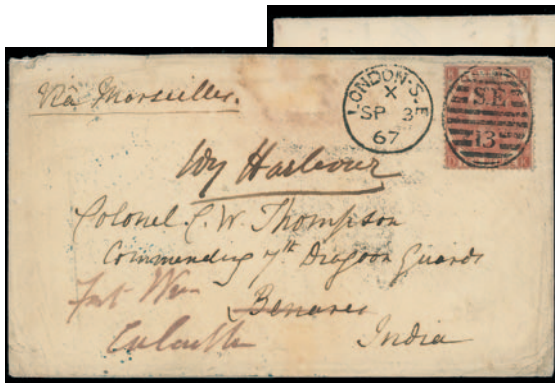 Via Marseilles.
LONDON·S.E
X
SP 3
67
S.E
13
Harbour
Colonel C. W. Thompson
Commanding 7th Dragoon Guards
Fort Wm
Benares
Calcutta
India